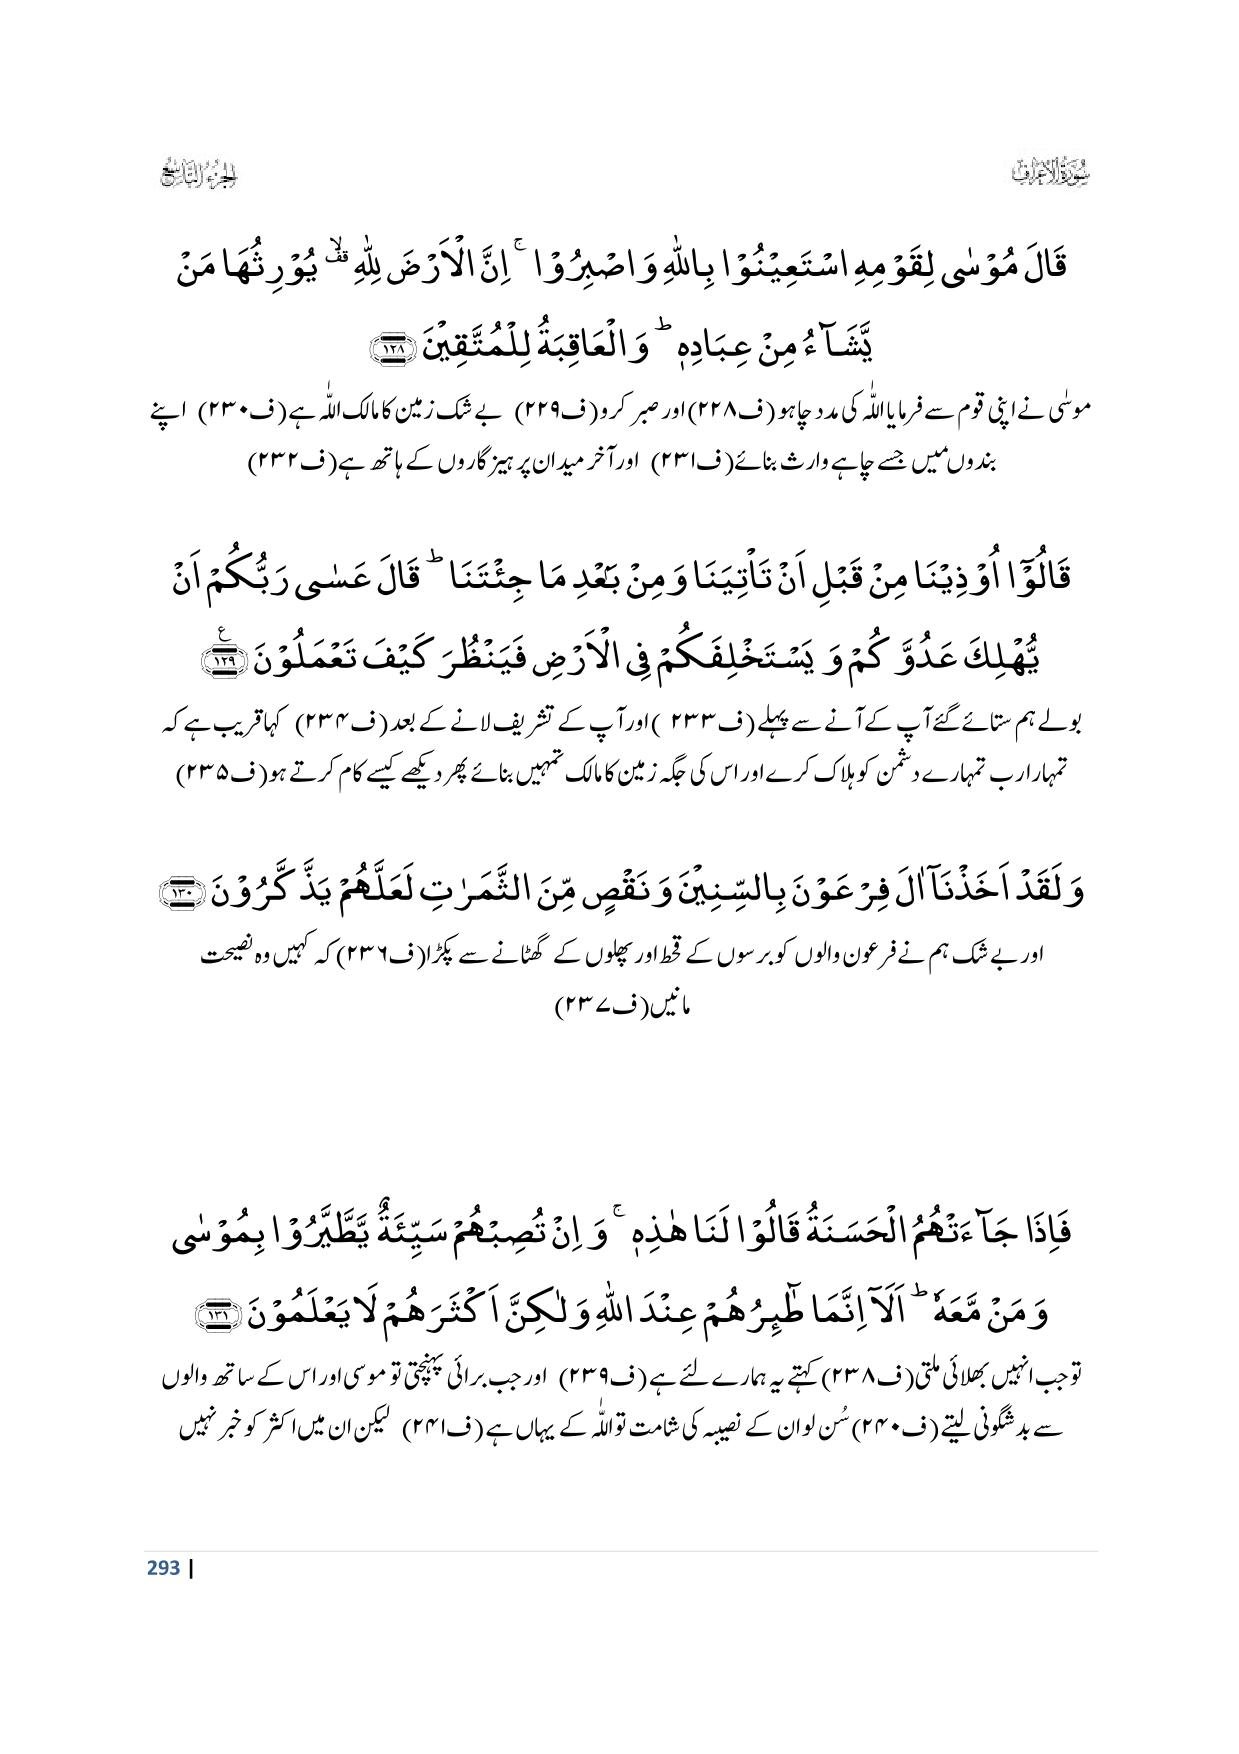 سُوۡرَةُ الۡاَعۡرَاف
الجزء التاسع
قَالَ مُوۡسٰی لِقَوۡمِهِ اسۡتَعِیۡنُوۡا بِاللّٰهِ وَ اصۡبِرُوۡا ۚ اِنَّ الۡاَرۡضَ لِلّٰهِ ۟ۙ یُوۡرِثُهَا مَنۡ
یَّشَآءُ مِنۡ عِبَادِهٖ ؕ وَ الۡعَاقِبَةُ لِلۡمُتَّقِیۡنَ ﴿۱۲۸﴾
موسٰی نے اپنی قوم سے فرمایا اللّٰہ کی مدد چاہو (ف۲۲۸) اور صبر کرو (ف۲۲۹) بے شک زمین کا مالک اللّٰہ ہے (ف۲۳۰) اپنے
بندوں میں جسے چاہے وارث بنائے (ف۲۳۱) اور آخر میدان پرہیزگاروں کے ہاتھ ہے (ف۲۳۲)
قَالُوۡۤا اُوۡذِیۡنَا مِنۡ قَبۡلِ اَنۡ تَاۡتِیَنَا وَ مِنۡۢ بَعۡدِ مَا جِئۡتَنَا ؕ قَالَ عَسٰی رَبُّکُمۡ اَنۡ
یُّهۡلِکَ عَدُوَّکُمۡ وَ یَسۡتَخۡلِفَکُمۡ فِی الۡاَرۡضِ فَیَنۡظُرَ کَیۡفَ تَعۡمَلُوۡنَ ﴿۱۲۹﴾ ع
بولے ہم ستائے گئے آپ کے آنے سے پہلے (ف۲۳۳ ) اور آپ کے تشریف لانے کے بعد (ف۲۳۴) کہا قریب ہے کہ
تمہارا رب تمہارے دشمن کو ہلاک کرے اور اس کی جگہ زمین کا مالک تمہیں بنائے پھر دیکھے کیسے کام کرتے ہو (ف۲۳۵)
وَ لَقَدۡ اَخَذۡنَاۤ اٰلَ فِرۡعَوۡنَ بِالسِّنِیۡنَ وَ نَقۡصٍ مِّنَ الثَّمَرٰتِ لَعَلَّهُمۡ یَذَّکَّرُوۡنَ ﴿۱۳۰﴾
اور بے شک ہم نے فرعون والوں کو برسوں کے قحط اور پھلوں کے گھٹانے سے پکڑا (ف۲۳۶) کہ کہیں وہ نصیحت
مانیں (ف۲۳۷)
فَاِذَا جَآءَتۡهُمُ الۡحَسَنَةُ قَالُوۡا لَنَا هٰذِهٖ ۚ وَ اِنۡ تُصِبۡهُمۡ سَیِّئَةٌ یَّطَّیَّرُوۡا بِمُوۡسٰی
وَ مَنۡ مَّعَهٗ ؕ اَلَاۤ اِنَّمَا طٰٓئِرُهُمۡ عِنۡدَ اللّٰهِ وَ لٰکِنَّ اَکۡثَرَهُمۡ لَا یَعۡلَمُوۡنَ ﴿۱۳۱﴾
تو جب انہیں بھلائی ملتی (ف۲۳۸) کہتے یہ ہمارے لئے ہے (ف۲۳۹) اور جب برائی پہنچتی تو موسی اور اس کے ساتھ والوں
سے بدشگونی لیتے (ف۲۴۰) سُن لو ان کے نصیبہ کی شامت تو اللّٰہ کے یہاں ہے (ف۲۴۱) لیکن ان میں اکثر کو خبر نہیں
293 |